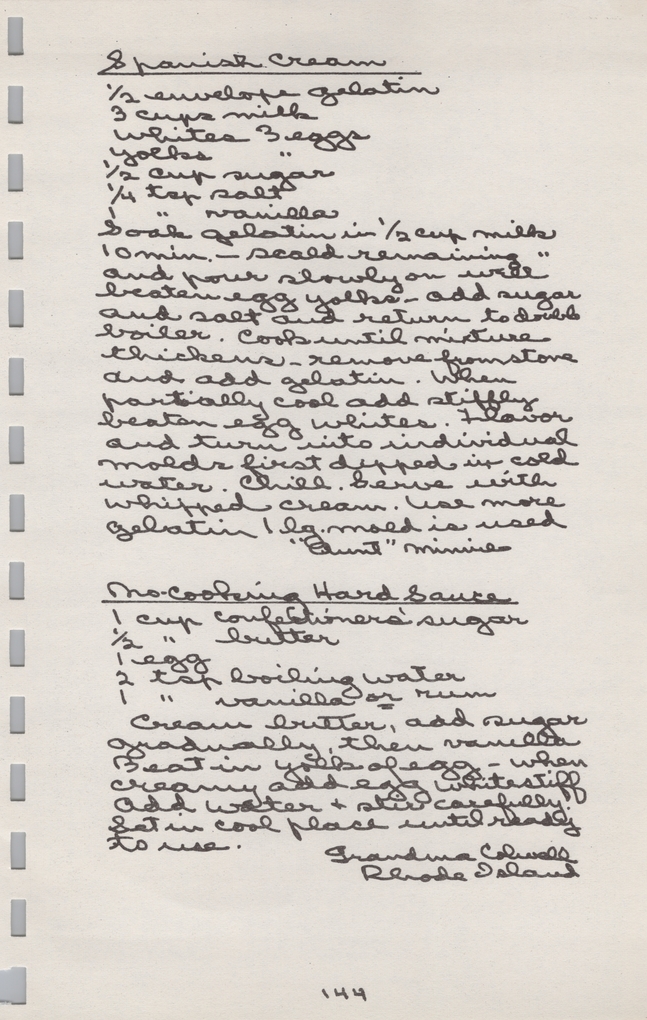 Spanish Cream
1/2 envelope gelatin
3 cups milk
whites 3 eggs
yolks "
1/2 cup sugar
1/4 tsp salt
1 " vanilla
Soak gelatin in 1/2 cup milk
10 min. - scald remaining "
and pour slowly on well
beaten egg yolks - add sugar
and salt and return to double
boiler. Cook until mixture
thickens - remove from stove
and add gelatin. When
partially cool add stiffly
beaten egg whites. Flavor
and turn into individual
molds first dipped in cold
water. Chill. Serve with
whipped cream. Use more
gelatin 1 lg. mold is used
"Aunt" Minnie
No-Cooking Hard Sauce
1 cup confectioners' sugar
1/2 " butter
1 egg
2 tsp boiling water
1 " vanilla or rum
Cream butter, add sugar
gradually, then vanilla
Beat in yolk of egg - when
creamy add egg white stiff
Add water + stir carefully.
Set in cool place until ready
to use.
Grandma Colwell
Rhode Island
144